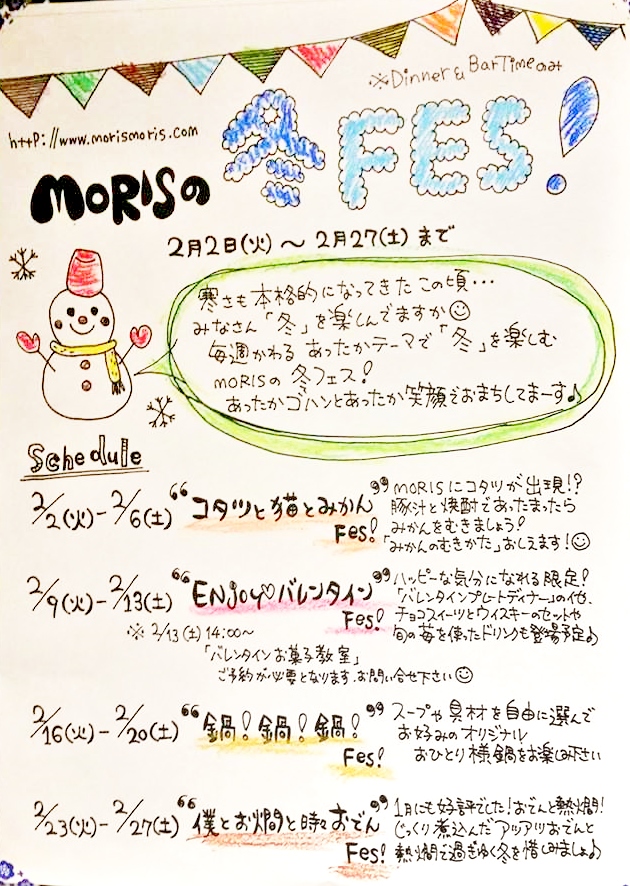 ※Dinner & BarTimeのみ
http://www.morismoris.com
冬FES!
MORISの
2月2日(火)～2月27(土)まで
寒さも本格的になってきたこの頃…
みなさん「冬」を楽しんでますか☺
毎週かわる あったかテーマで「冬」を楽しむ
MORISの 冬フェス!
あったかゴハンとあったか笑顔でおまちしてまーす♪
Schedule
2/2(火)-2/6(土)
"コタツと猫とみかん"
Fes!
MORISにコタツが出現!?
豚汁と焼酎であったまったら
みかんをむきましょう!
「みかんのむきかた」おしえます!☺
2/9(火)-2/13(土)
"ENJoy♡バレンタイン"
Fes!
ハッピーな気分になれる限定!
「バレンタインプレートディナー」の他、
チョコスイーツとウイスキーのセットや
旬の苺を使ったドリンクも登場予定♪
※2/13(土)14:00～
「バレンタインお菓子教室」
ご予約が必要となります.お問い合せ下さい☺
2/16(火)-2/20(土)
"鍋!鍋!鍋!"
Fes!
スープや具材を自由に選んで
お好みのオリジナル
おひとり様鍋をお楽しみ下さい
2/23(火)-2/27(土)
"僕とお燗と時々おでん"
Fes!
1月にも好評でした!おでんと熱燗!
じっくり煮込んだアツアツおでんと
熱燗で過ぎゆく冬を惜しみましょ♪